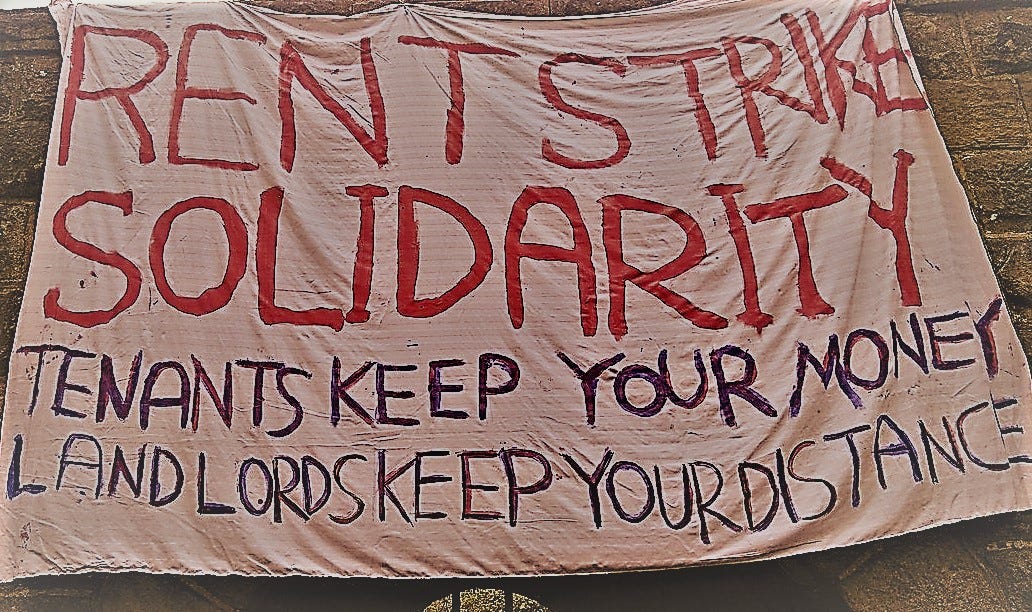 RENT STRIKE
SOLIDARITY
TENANTS KEEP YOUR MONEY
LANDLORDS KEEP YOUR DISTANCE